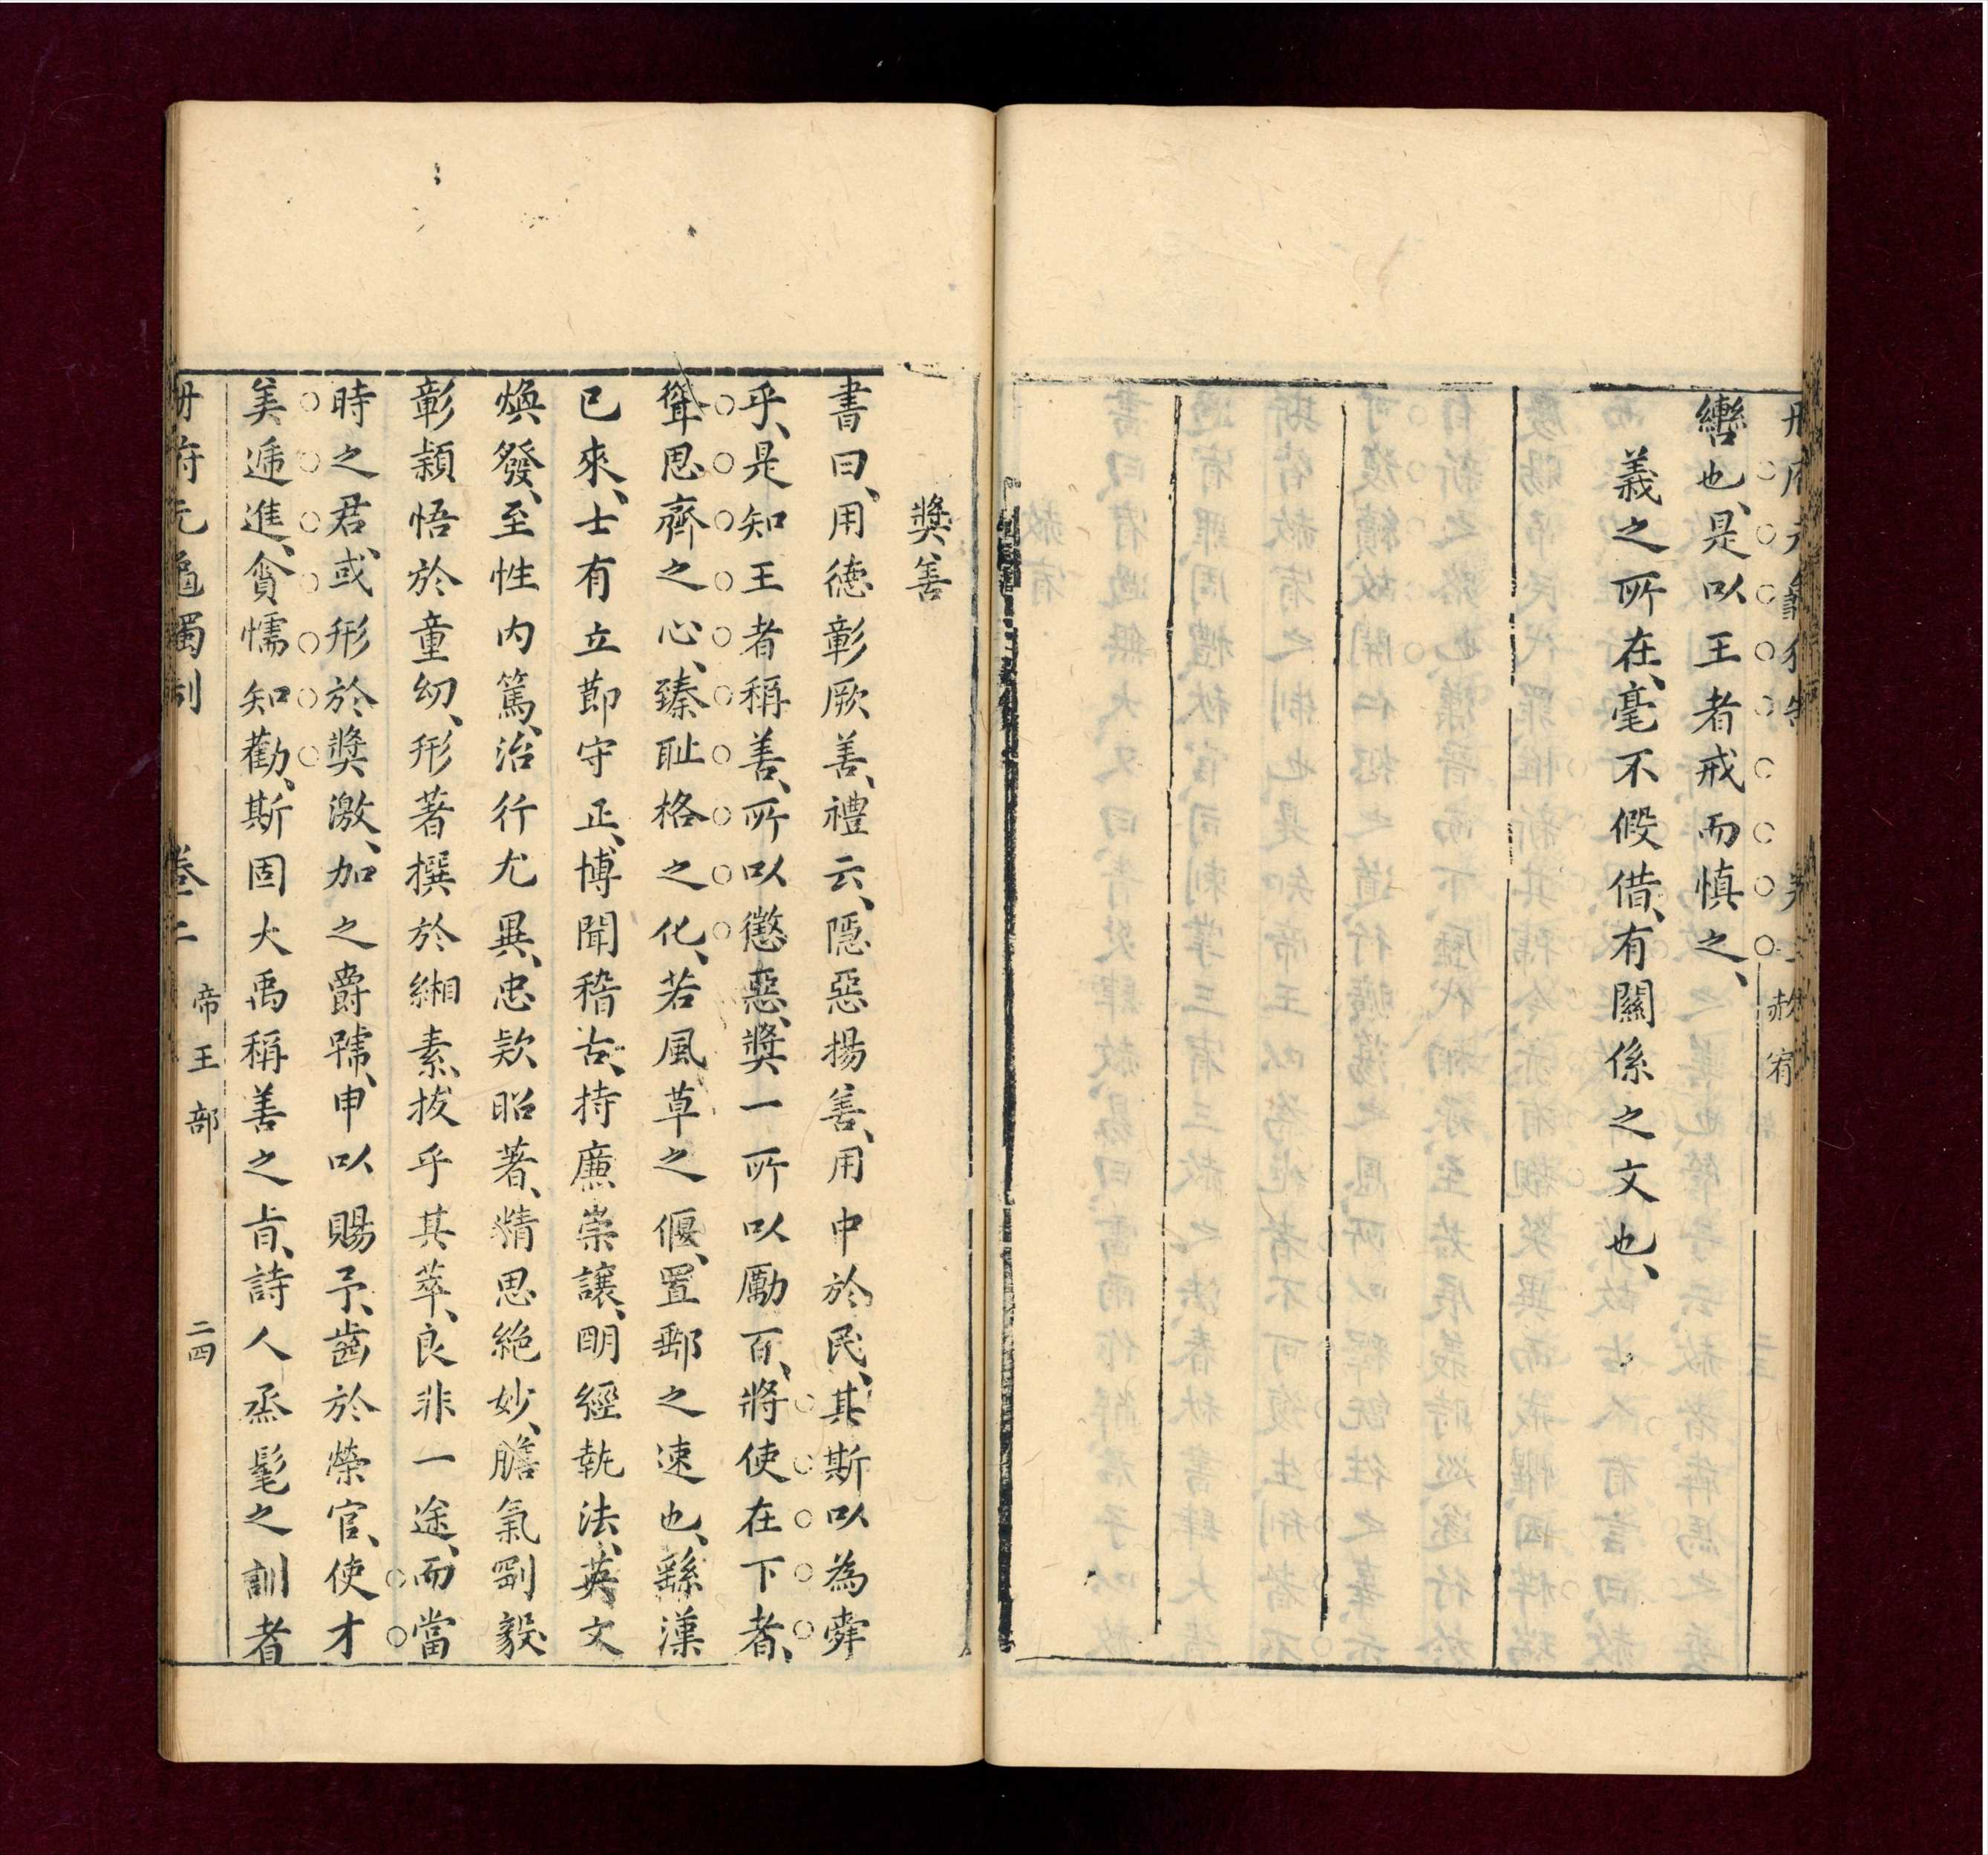 冊府元龜獨制 卷二 赦宥
轡也、是以王者戒而慎之、
義之所在、毫不假借、有關係之文也、
獎善
書曰、用德彰厥善、禮云、隱惡揚善、用中於民、其斯以為舜
乎、是知王者稱善、所以懲惡、獎一所以勵百、將使在下者、
聳思齊之心、臻耻格之化、若風草之偃、置郵之速也、繇漢
已來、士有立節守正、博聞稽古、持廉崇讓、明經執法、英文
煥發、至性內篤、治行尤異、忠欵昭著、精思絶妙、膽氣剛毅
彰穎悟於童幼、形著撰於緗素、拔乎其萃、良非一途、而當
時之君、或形於獎激、加之爵號、申以賜予、齒於榮官、使才
美遞進、貪懦知勸、斯固大禹稱善之旨、詩人烝髦之訓者
冊府元龜獨制 卷二 帝王部 二四